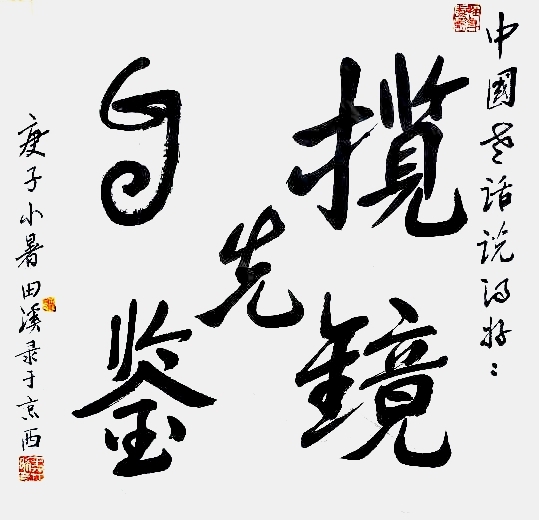 中國老话说得好：
揽
镜
先
自
鉴
庚子小暑田溪录于京西